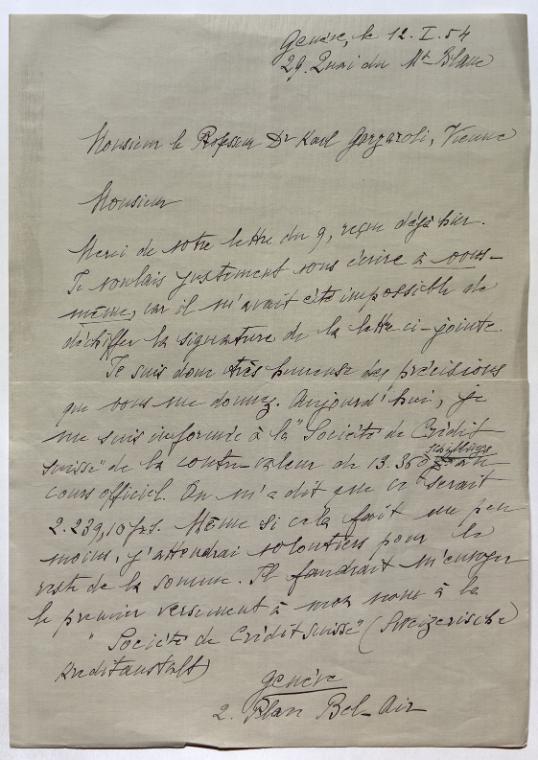 Genève, le 12. I. 54
29. Quai du Mt Blanc
Monsieur le Professeur Dr Karl Garzaroli, Vienne
Monsieur
Merci de votre lettre du 9, reçue déjà hier.
Je voulais justement vous écrire à vous-
même, car il m'avait été impossible de
déchiffer la signature de la lettre ci-jointe.
Je suis donc très heureuse des précisions
que vous me donnez. Aujourd'hui, je
me suis informée à la "Société de Crédit
suisse" de la contre-valeur de 13.360 schillings au
cours officiel. On m'a dit que ce serait
2.239,10 frs. Même si cela fait un peu
moins, j'attendrai volontiers pour le
reste de la somme. Il faudrait m'envoyer
le premier versement à mon nom à la
"Société de Crédit Suisse" (Sweizerische
Kreditanstalt)
Genève
2. Place Bel-Air